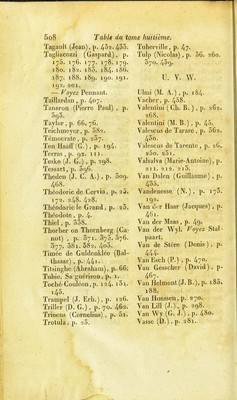 508 Table du tome huitième.
Tagault (Jean), p. 452. 455.
Tagliacozzi (Gaspard), p.
175. 176. 177. 178. 179.
180. 182. 183. 184. 186.
187. 188. 189. 190. 191.
192. 201.
— Voyez Pennant.
Taillardan, p. 407.
Tanaron (Pierre Paul), p.
393.
Taylor, p. 66. 76.
Teichmeyer, p. 382.
Témocrate, p. 257.
Ten Haaff (G.), p. 194.
Terras, p. 92. 111.
Teske (J. G.), p. 298.
Tessart, p. 396.
Theden (J. C. A.), p. 309.
468.
Théodoric de Cervia, p. 25.
172. 248. 428.
Théodoric le Grand, p. 25.
Théodote, p. 4.
Thiel, p. 338.
Thorber on Thornberg (Canut)
, p. 371. 373. 376.
377. 381. 382. 403.
Timée de Guldenklée (Balthasar)
, p. 441.
Titsinghe (Abraham), p. 66.
Tobie. Sa guérison, p. 1.
Toché Couléon, p. 124. 131.
145.
Trampel (J. Erh.), p. 126.
Triller (D. G.), p. 70. 462.
Trinens (Cornelius), p. 51.
Trotula, p. 25.
Tuberville, p. 47.
Tulp (Nicolas), p. 36. 260.
370. 439.
U. V. W.
Ulmi (M. A.), p. 184.
Vacher, p. 458.
Valentini (Ch. B.), p. 262.
268.
Valentini (M. B.), p. 45.
Valescus de Tararo, p. 362.
430.
Valescus de Tarente, p. 26.
230. 251.
Valsalva (Marie-Antoine), p.
211. 212. 213.
Van Dalen (Guillaume), p.
435.
Vandenesse (N.), p. 175.
192.
Van der Haar (Jacques), p.
461.
Van der Maas, p. 49.
Van der Wyl. Voyez Stalpaart.
Van de Stère (Denis), p.
444.
Van Esch (P.), p. 470.
Van Gesscher (David), p.
467.
Van Helmont (J. B.), p. 185.
188.
Van Houssen, p. 270.
Van Lill (J.), p. 298.
Van Wy (G. J.), p. 480.
Vasse (D.), p. 281.